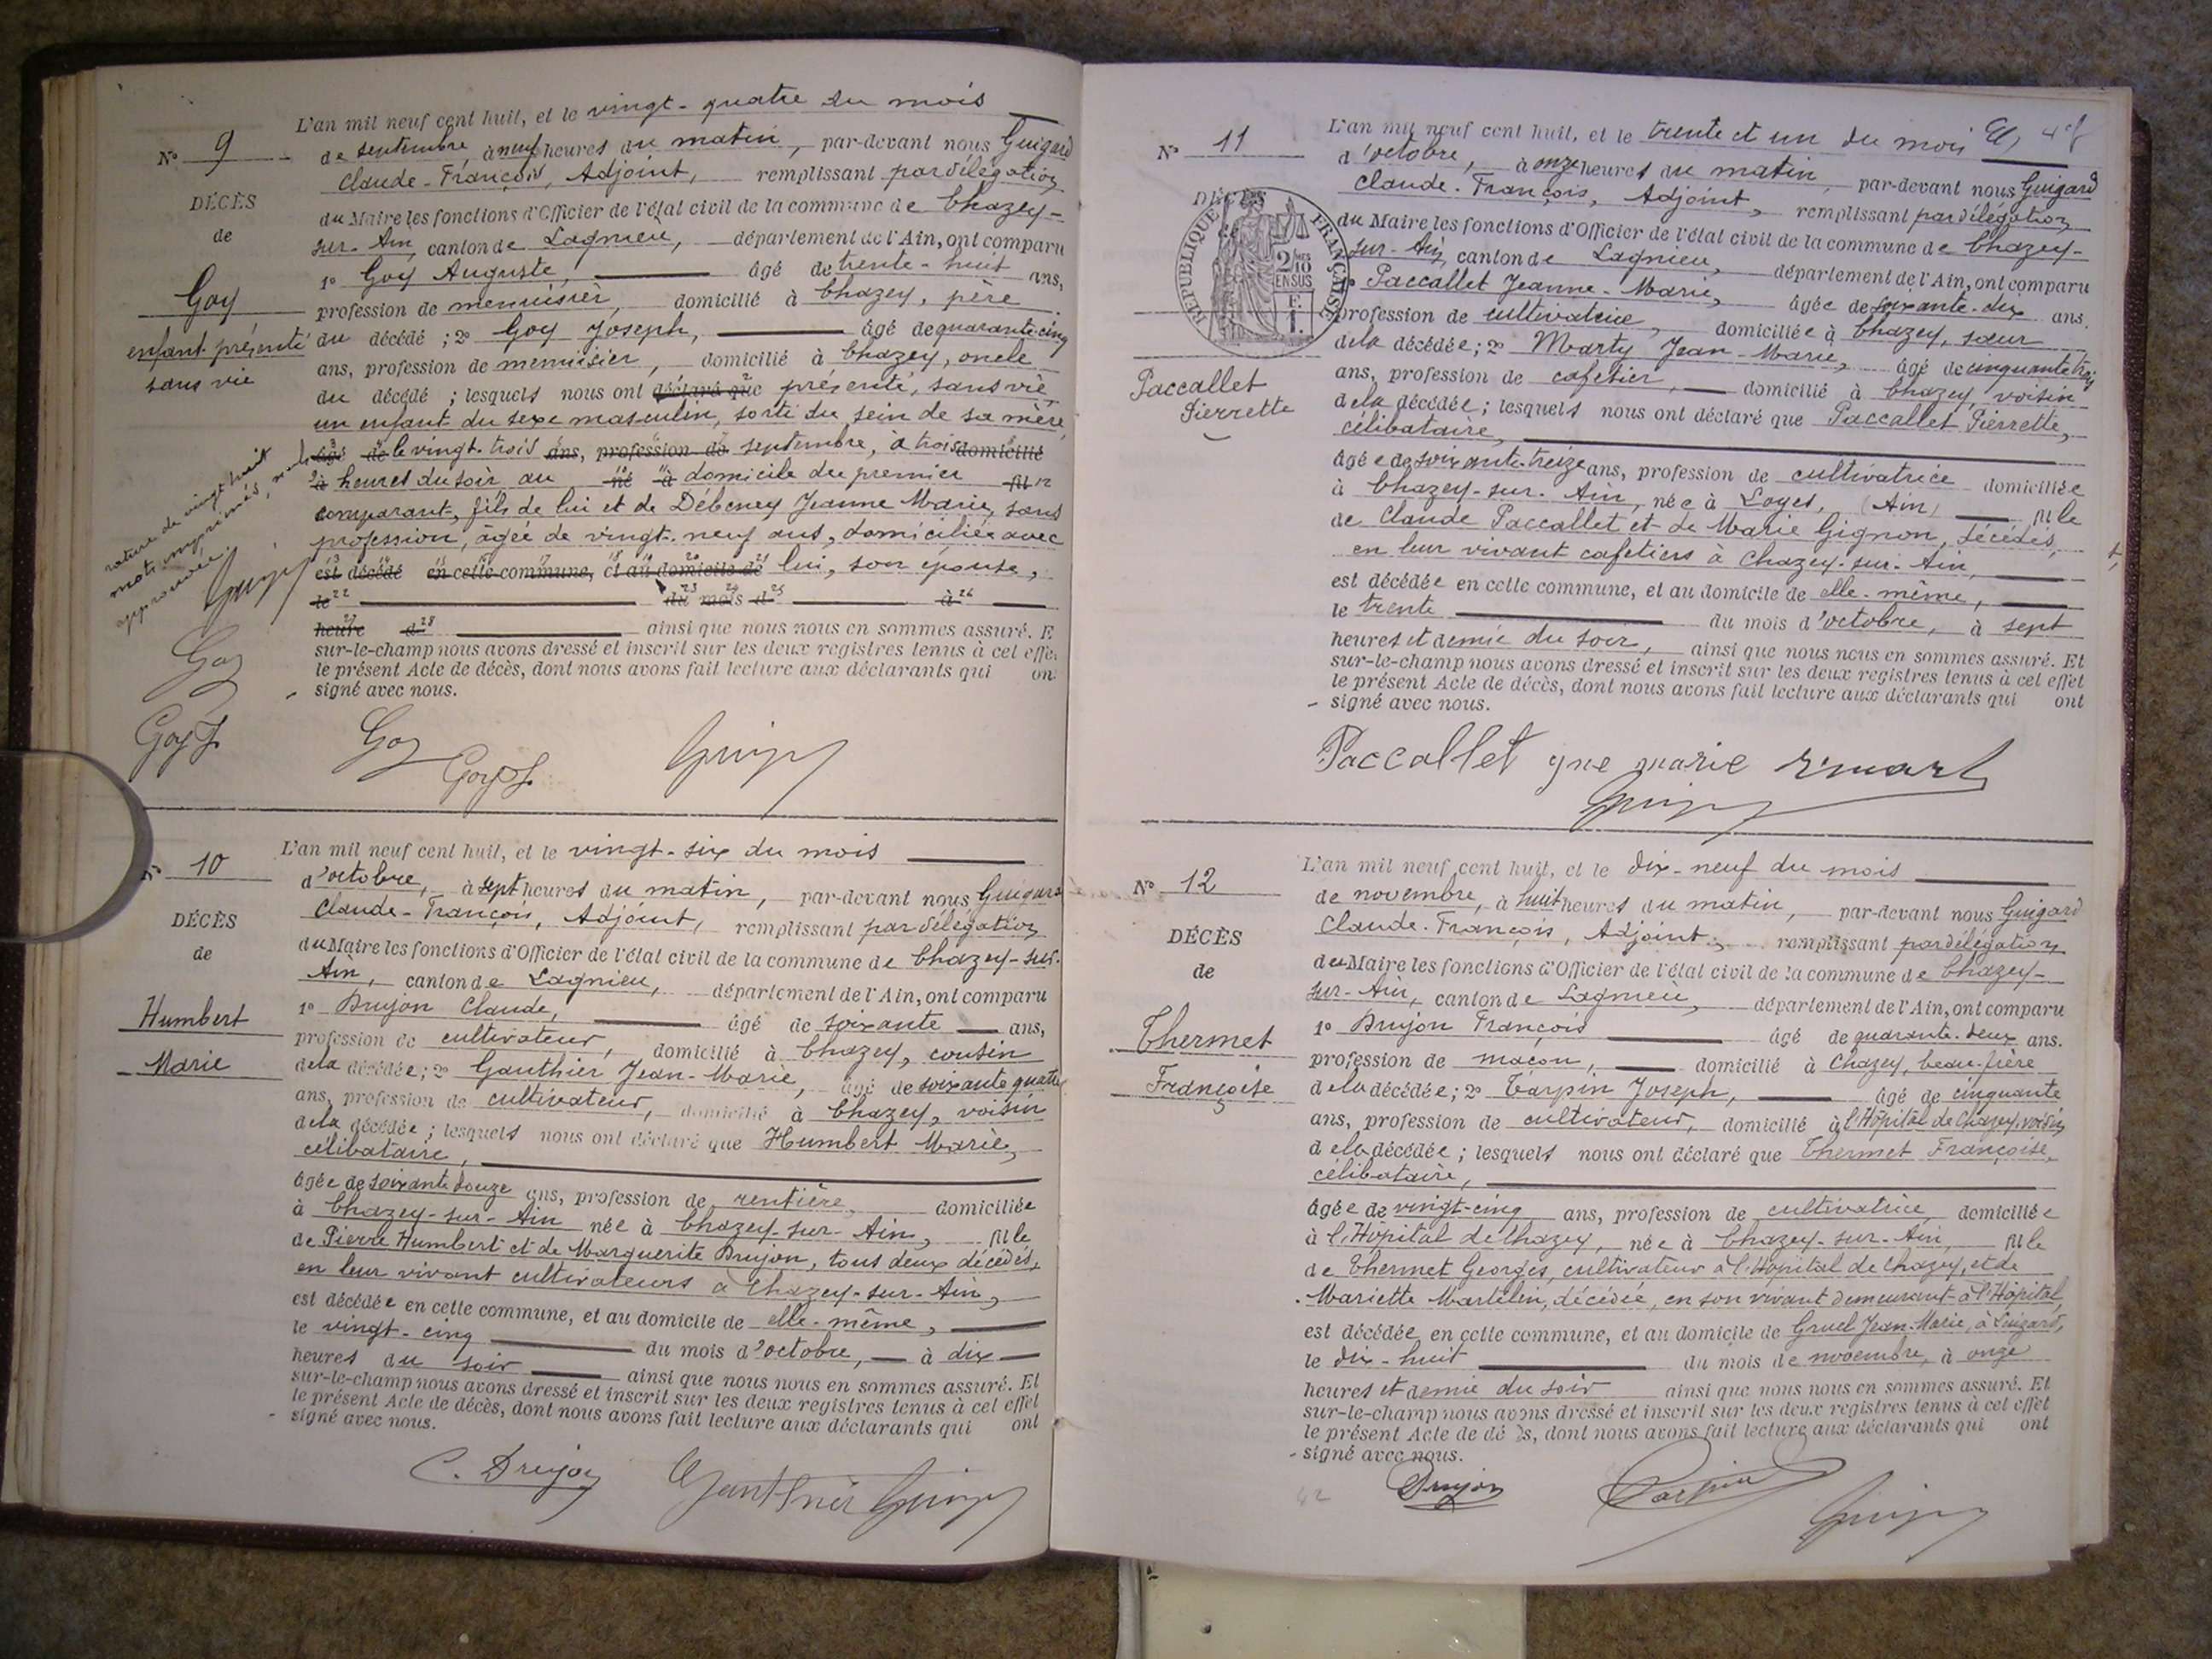 L'an mil neuf cent huit, et le vingt-quatre du mois
N° 9
de septembre, à neuf heures du matin, par-devant nous Guigard
Claude-François, Adjoint, remplissant par délégation
DÉCÈS
du Maire les fonctions d'Officier de l'état civil de la commune de Chazey-
de
sur-Ain, canton de Lagnieu, département de l'Ain, ont comparu
1° Goy Auguste, âgé de trente-huit ans,
Goy
profession de menuisier, domicilié à Chazey, père
enfant présenté
du décédé ; 2° Goy Joseph, âgé de quarante cinq
sans vie
ans, profession de menuisier, domicilié à Chazey, oncle
du décédé ; lesquels nous ont déclaré que présenté, sans vie,
un enfant du sexe masculin, sorti du sein de sa mère,
âgé de le vingt-trois ans, profession de septembre, à trois domicilié
à heures du soir au né à domicile du premier fil
comparant, fils de lui et de Débeney Jeanne Marie, sans
profession, âgée de vingt-neuf ans, domiciliée avec
rature de vingt huit
mots imprimés, nuls
approuvée.
est décédé en cette commune, et au domicile de lui, son épouse,
le du mois d à
heure d ainsi que nous nous en sommes assuré. E
sur-le-champ nous avons dressé et inscrit sur les deux registres tenus à cet effe
le présent Acte de décès, dont nous avons fait lecture aux déclarants qui on
signé avec nous.
Goy
Goy J.
Goy
Goy J.
L'an mil neuf cent huit, et le vingt-six du mois
N° 10
d'octobre, à sept heures du matin, par-devant nous Guigard
Claude-François, Adjoint, remplissant par délégation
DÉCÈS
du Maire les fonctions d'Officier de l'état civil de la commune de Chazey-sur-
de
Ain, canton de Lagnieu, département de l'Ain, ont comparu
Humbert
1° Drujon Claude, âgé de soixante ans,
profession de cultivateur, domicilié à Chazey, cousin
Marie
de la décédée ; 2° Gauthier Jean-Marie, âgé de soixante quatre
ans, profession de cultivateur, domicilié à Chazey, voisin
de la décédée ; lesquels nous ont déclaré que Humbert Marie,
célibataire,
âgée de soixante douze ans, profession de rentière, domiciliée
à Chazey-sur-Ain née à Chazey-sur-Ain, fille
de Pierre Humbert et de Marguerite Drujon, tous deux décédés,
en leur vivant cultivateurs à Chazey-sur-Ain,
est décédée en cette commune, et au domicile de elle-même,
le vingt-cinq du mois d'octobre, à dix
heures du soir ainsi que nous nous en sommes assuré. Et
sur-le-champ nous avons dressé et inscrit sur les deux registres tenus à cet effet
le présent Acte de décès, dont nous avons fait lecture aux déclarants qui ont
signé avec nous.
C. Drujon Gauthier
L'an mil neuf cent huit, et le trente et un du mois
N° 11
d'octobre, à onze heures du matin, par-devant nous Guigard
Claude-François, Adjoint, remplissant par délégation
DÉCÈS
RÉPUBLIQUE FRANÇAISE
2/10 EN SUS
du Maire les fonctions d'Officier de l'état civil de la commune de Chazey-
sur-Ain, canton de Lagnieu, département de l'Ain, ont comparu
Paccallet Jeanne-Marie, âgée de soixante-dix ans,
profession de cultivatrice, domiciliée à Chazey, sœur
de la décédée ; 2° Marty Jean-Marie, âgé de cinquante trois
ans, profession de cafetier, domicilié à Chazey, voisin
Paccallet
Pierrette
de la décédée ; lesquels nous ont déclaré que Paccallet Pierrette,
célibataire,
âgée de soixante-treize ans, profession de cultivatrice domiciliée
à Chazey-sur-Ain, née à Loyes, (Ain) fille
de Claude Paccallet et de Marie Gignon, décédés,
en leur vivant cafetiers à Chazey-sur-Ain,
est décédée en cette commune, et au domicile de elle-même,
le trente du mois d'octobre, à sept
heures et demie du soir, ainsi que nous nous en sommes assuré. Et
sur-le-champ nous avons dressé et inscrit sur les deux registres tenus à cet effet
le présent Acte de décès, dont nous avons fait lecture aux déclarants qui ont
signé avec nous.
Paccallet gne marie
L'an mil neuf cent huit, et le dix-neuf du mois
N° 12
de novembre, à huit heures du matin, par-devant nous Guigard
Claude-François, Adjoint, remplissant par délégation
DÉCÈS
du Maire les fonctions d'Officier de l'état civil de la commune de Chazey-
de
sur-Ain, canton de Lagnieu, département de l'Ain, ont comparu
Thermet
1° Drujon François âgé de quarante-deux ans.
profession de maçon, domicilié à Chazey, beau-frère
Françoise
de la décédée ; 2° Tarpin Joseph, âgé de cinquante
ans, profession de cultivateur, domicilié à l'Hôpital de Chazey, voisin
de la décédée ; lesquels nous ont déclaré que Thermet Françoise,
célibataire,
âgée de vingt-cinq ans, profession de cultivatrice domiciliée
à l'Hôpital de Chazey, née à Chazey-sur-Ain, fille
de Thermet Georges, cultivateur à l'Hôpital de Chazey, et de
Mariette Martelin, décédée, en son vivant demeurant à l'Hôpital,
est décédée en cette commune, et au domicile de Gruel Jean-Marie, à
le dix-huit du mois de novembre, à onze
heures et demie du soir ainsi que nous nous en sommes assuré. Et
sur-le-champ nous avons dressé et inscrit sur les deux registres tenus à cet effet
le présent Acte de décès, dont nous avons fait lecture aux déclarants qui ont
signé avec nous.
Drujon Tarpin